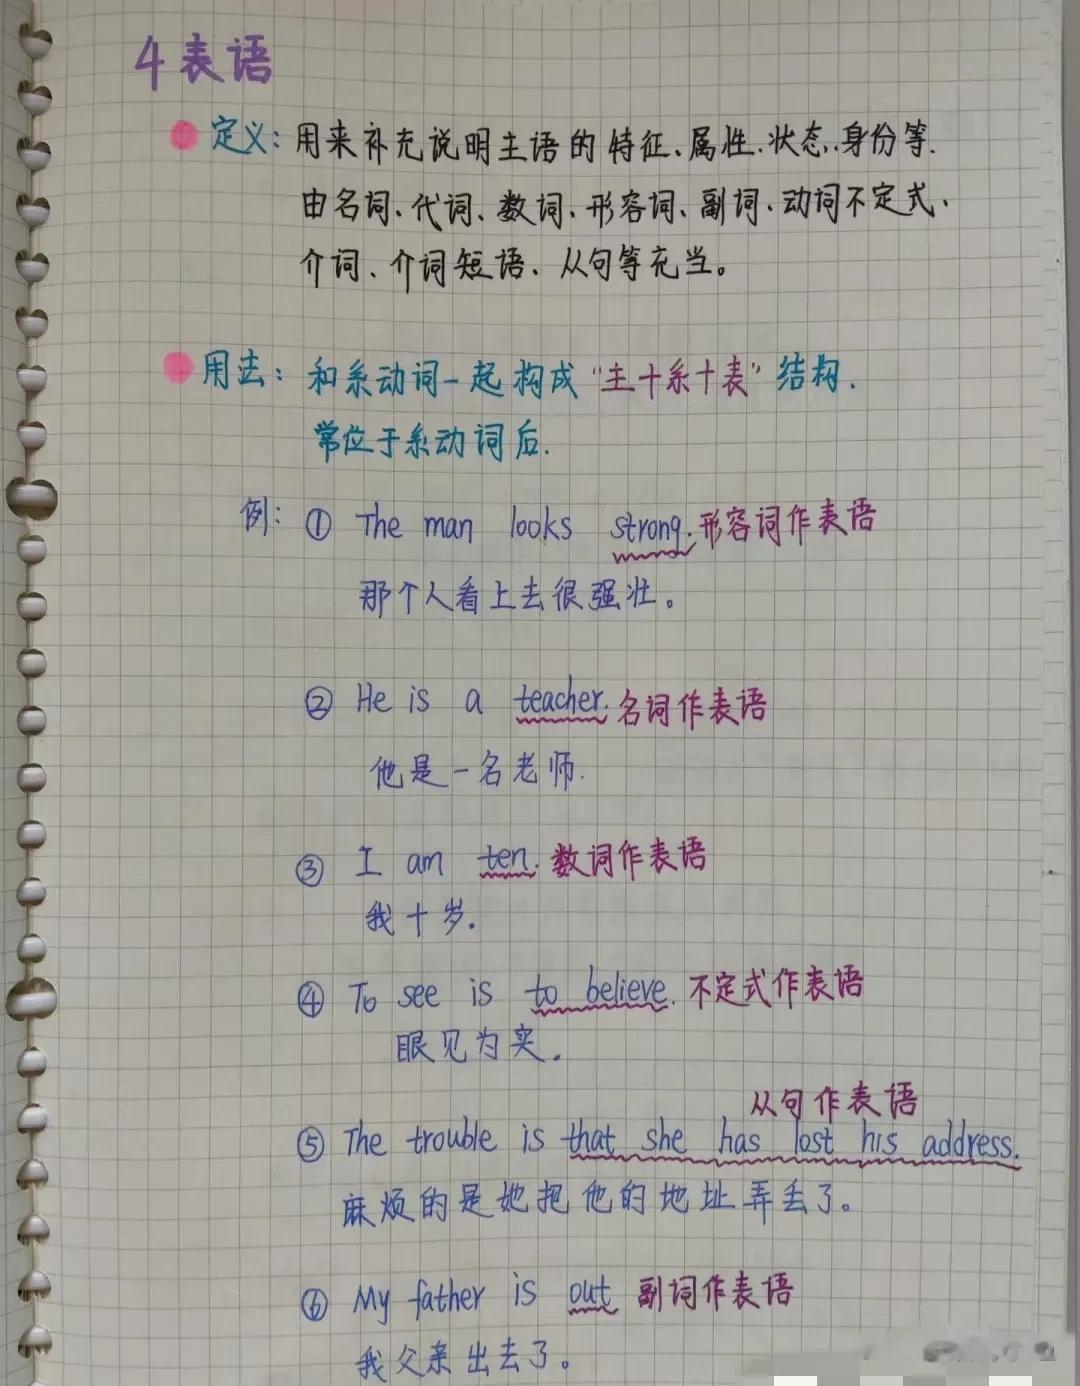 4 表语
定义: 用来补充说明主语的特征、属性、状态、身份等.
由名词、代词、数词、形容词、副词、动词不定式、
介词、介词短语、从句等充当。
用法: 和系动词一起构成“主+系+表”结构.
常位于系动词后.
例: ① The man looks strong. 形容词作表语
那个人看上去很强壮。
② He is a teacher. 名词作表语
他是一名老师.
③ I am ten. 数词作表语
我十岁.
④ To see is to believe. 不定式作表语
眼见为实.
从句作表语
⑤ The trouble is that she has lost his address.
麻烦的是她把他的地址弄丢了。
⑥ My father is out 副词作表语
我父亲出去了。